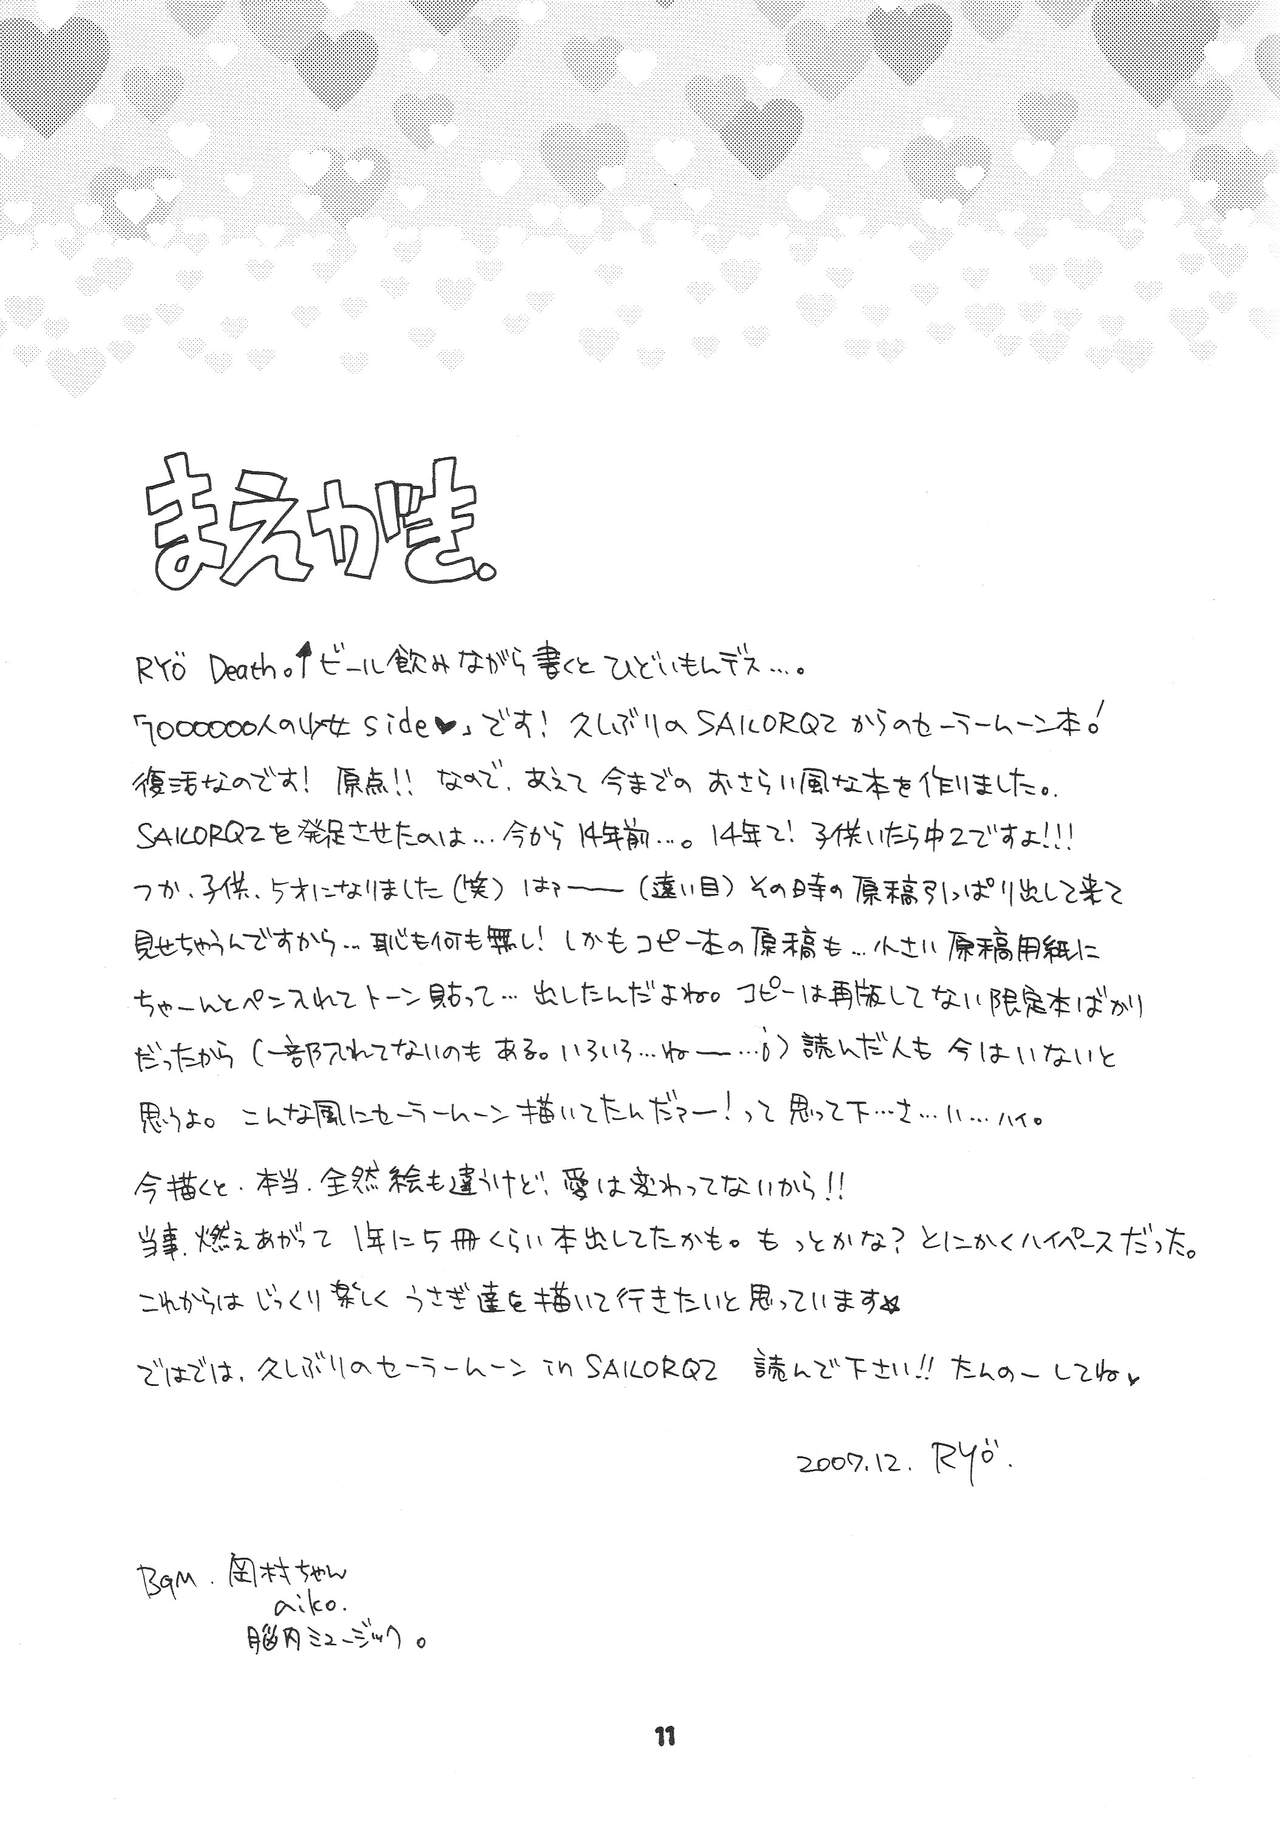 まえがき.
RYÖ Death。↑ビール飲みながら書くとひどいもんデス…。
「7000000人の少女 side♥」です！ 久しぶりの SAILORQ2 からのセーラームーン本！
復活なのです！ 原点!! なので、あえて今までの おさらい風な本を作りました。
SAILORQ2を発足させたのは…今から14年前…。14年て！子供いたら中2ですよ!!!
つか、子供、5才になりました（笑）はァーー（遠い目）その時の原稿引っぱり出して来て
見せちゃうんですから…恥も何も無し！しかもコピー本の原稿も…小さい原稿用紙に
ちゃーんとペン入れてトーン貼って…出したんだよね。コピーは再版してない限定本ばかり
だったから（一部入れてないのもある。いろいろ…ねー…）読んだ人も今はいないと
思うよ。こんな風にセーラームーン描いてたんだァー！って思って下…さ…い…ハイ。
今描くと、本当、全然絵も違うけど、愛は変わってないから!!
当事、燃えあがって 1年に5冊くらい本出してたかも。もっとかな？とにかくハイペースだった。
これからは じっくり楽しく うさぎ達を描いて行きたいと思っています☆
ではでは、久しぶりのセーラームーン in SAILORQ2 読んで下さい!! たんのーしてね♥
2007.12. RYÖ.
BGM. 岡村ちゃん
aiko.
脳内ミュージック。
11